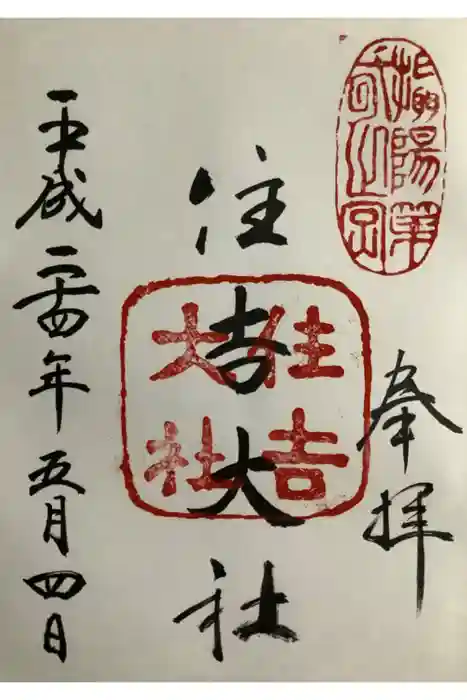 奉拝
住吉大社
住吉
大社
平成二十四年五月四日